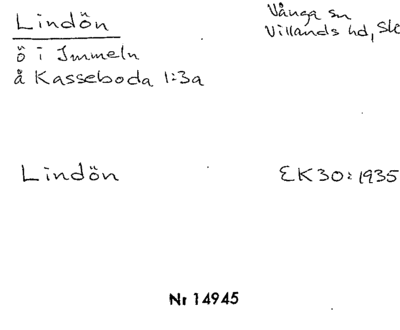 Lindön
Vånga sn
Villands hd, Sk
ö i Immeln
å Kasseboda 1:3a
Lindön
EK30:1935
Nr 14945